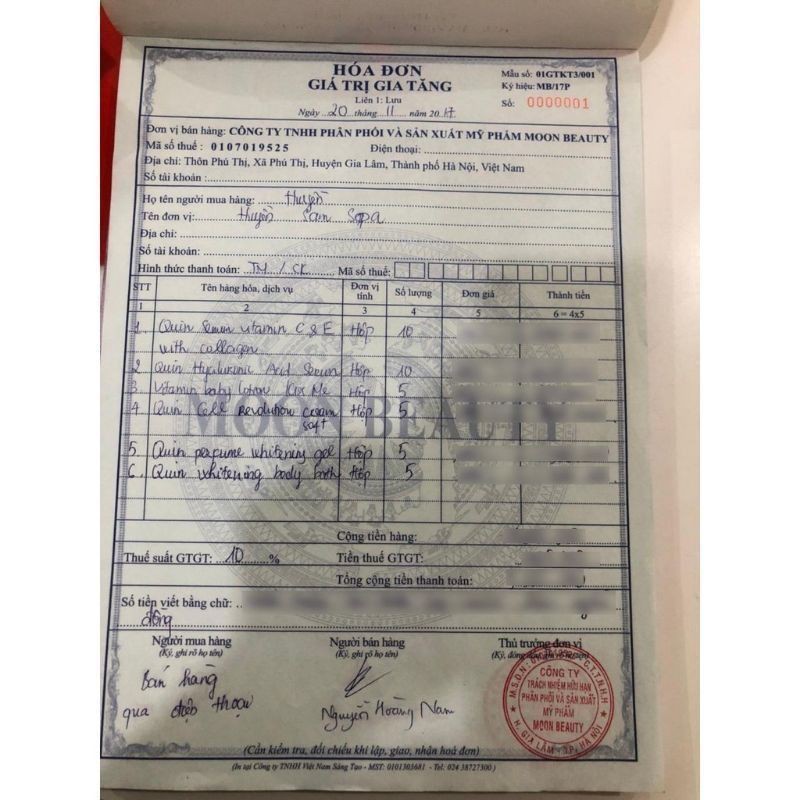 HÓA ĐƠN
GIÁ TRỊ GIA TĂNG
Liên 1: Lưu
Ngày 20 tháng 11 năm 2017
Mẫu số: 01GTKT3/001
Ký hiệu: MB/17P
Số: 0000001
Đơn vị bán hàng: CÔNG TY TNHH PHÂN PHỐI VÀ SẢN XUẤT MỸ PHẨM MOON BEAUTY
Mã số thuế : 0107019525 Điện thoại:
Địa chỉ: Thôn Phú Thị, Xã Phú Thị, Huyện Gia Lâm, Thành phố Hà Nội, Việt Nam
Số tài khoản:
Họ tên người mua hàng: Huyền
Tên đơn vị: Huyền Sam Sapa
Địa chỉ:
Số tài khoản:
Hình thức thanh toán: TM / CK Mã số thuế:
STT Tên hàng hóa, dịch vụ Đơn vị tính Số lượng Đơn giá Thành tiền
1 2 3 4 5 6 = 4x5
1. Quin Serum vitamin C & E Hộp 10
with collagen
2 Quin Hyaluronic Acid Serum Hộp 10
3 Vitamin baby lotion Kiss Me Hộp 5
4 Quin Cell Revolution cream Hộp 5
soft
5. Quin perfume whitening gel Hộp 5
6. Quin whitening body bath Hộp 5
MOON BEAUTY
Cộng tiền hàng:
Thuế suất GTGT: 10 % Tiền thuế GTGT:
Tổng cộng tiền thanh toán:
Số tiền viết bằng chữ:
đồng
Người mua hàng Người bán hàng Thủ trưởng đơn vị
(Ký, ghi rõ họ tên) (Ký, ghi rõ họ tên)
Bán hàng
qua điện thoại
Nguyễn Hoàng Nam
CÔNG TY
TRÁCH NHIỆM HỮU HẠN
PHÂN PHỐI VÀ SẢN XUẤT
MỸ PHẨM
MOON BEAUTY
H. GIA LÂM - TP. HÀ NỘI
(Cần kiểm tra, đối chiếu khi lập, giao, nhận hoá đơn)
(In tại Công ty TNHH Việt Nam Sáng Tạo - MST: 0101303681 - Tel: 024 38727300 )